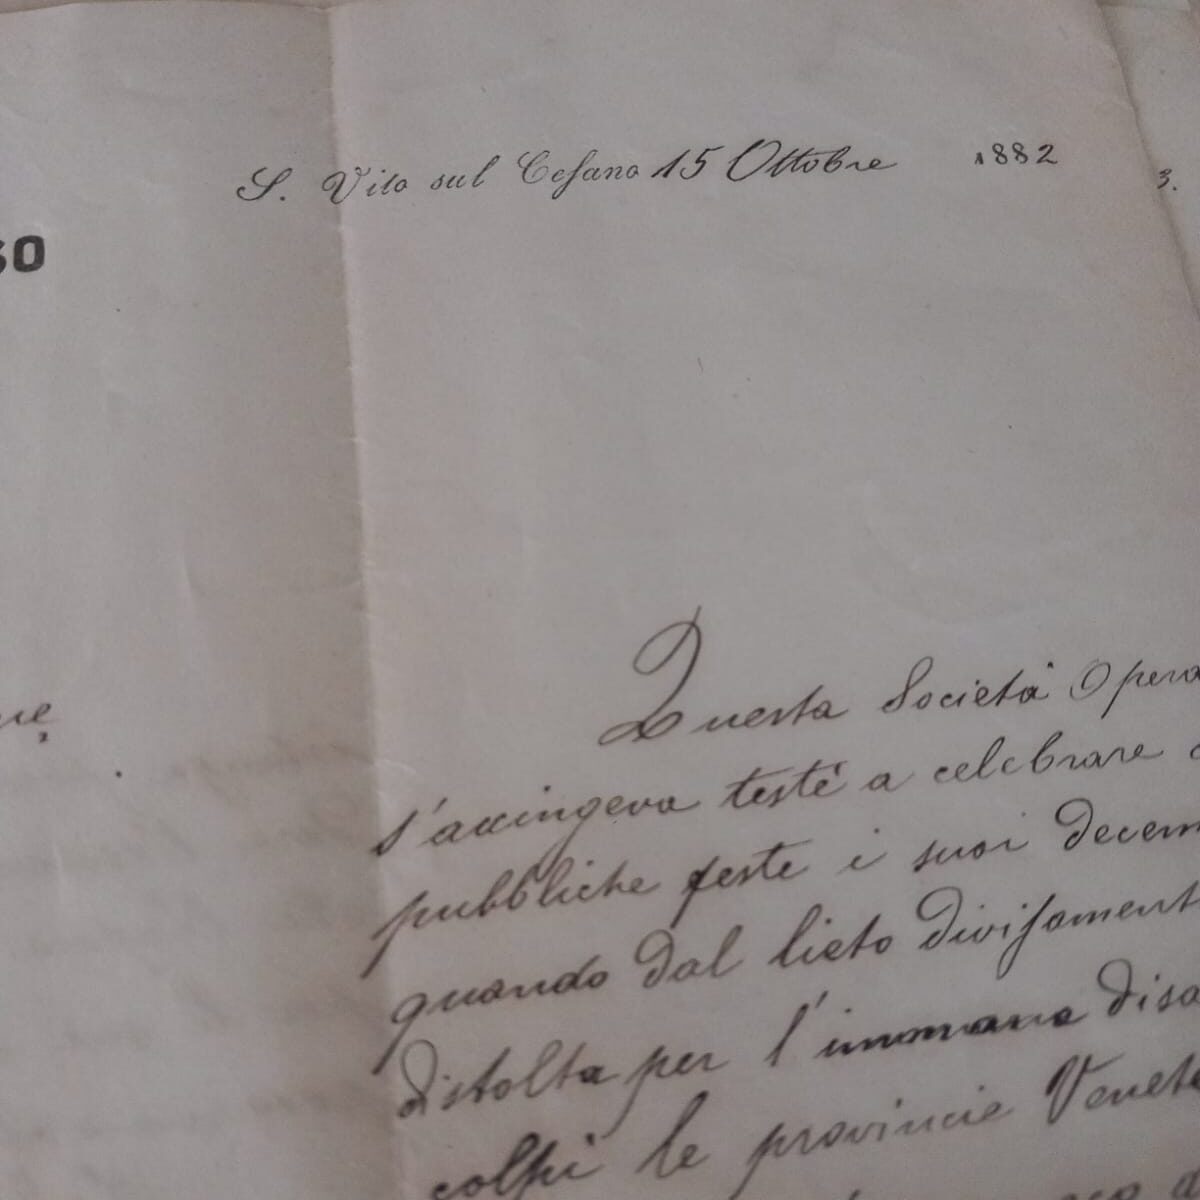 S. Vito sul Cesano 15 Ottobre 1882
3.
SO
Questa Società Opera
s'accingeva testè a celebrare
pubbliche feste i suoi decem
quando dal lieto divisament
distolta per l'immane disa
colpì le provincie Venete